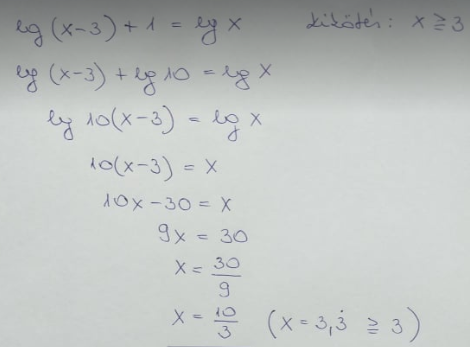 lg (x-3) + 1 = lg x kikötés: x ≧ 3
lg (x-3) + lg 10 = lg x
lg 10(x-3) = lg x
10(x-3) = x
10x - 30 = x
9x = 30
x = 30/9
x = 10/3 (x = 3,3̇ ≧ 3)